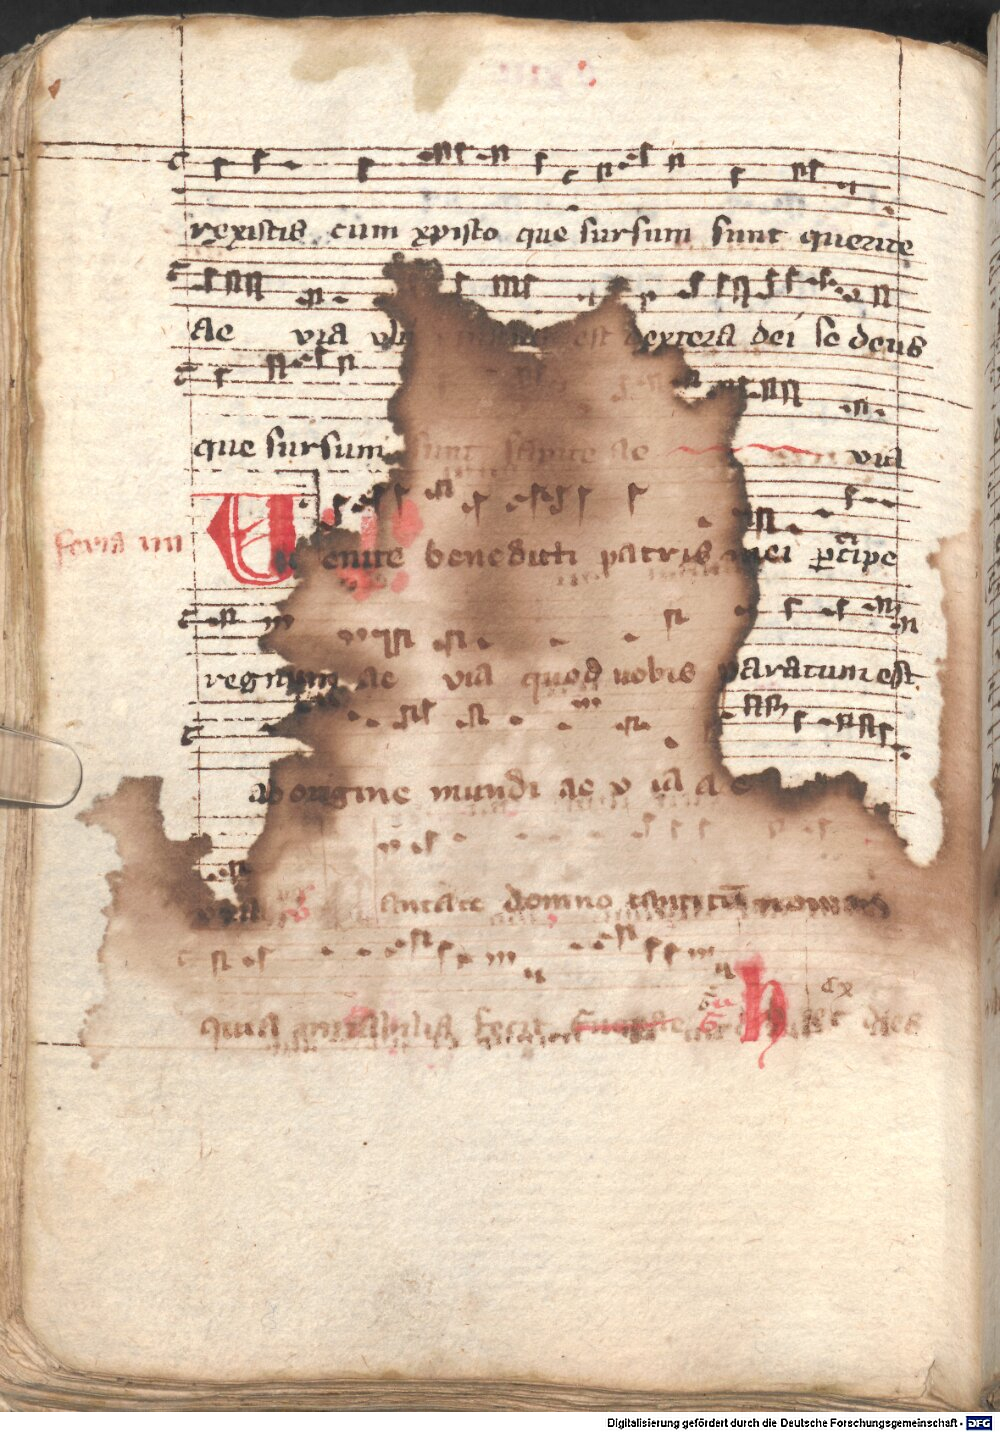 rexistis cum xpisto que sursum sunt querite
ae via vbi est dextera dei se deus
que sursum sunt sapite ae via
feria iiii
Uenite benedicti patris mei p̱cipe
regnum ae via quod uobis paratum est
ab origine mundi ae v ia a e
via antate domino canticū nouum
quia mirabilia fecit H ec dies
Digitalisierung gefördert durch die Deutsche Forschungsgemeinschaft - DFG